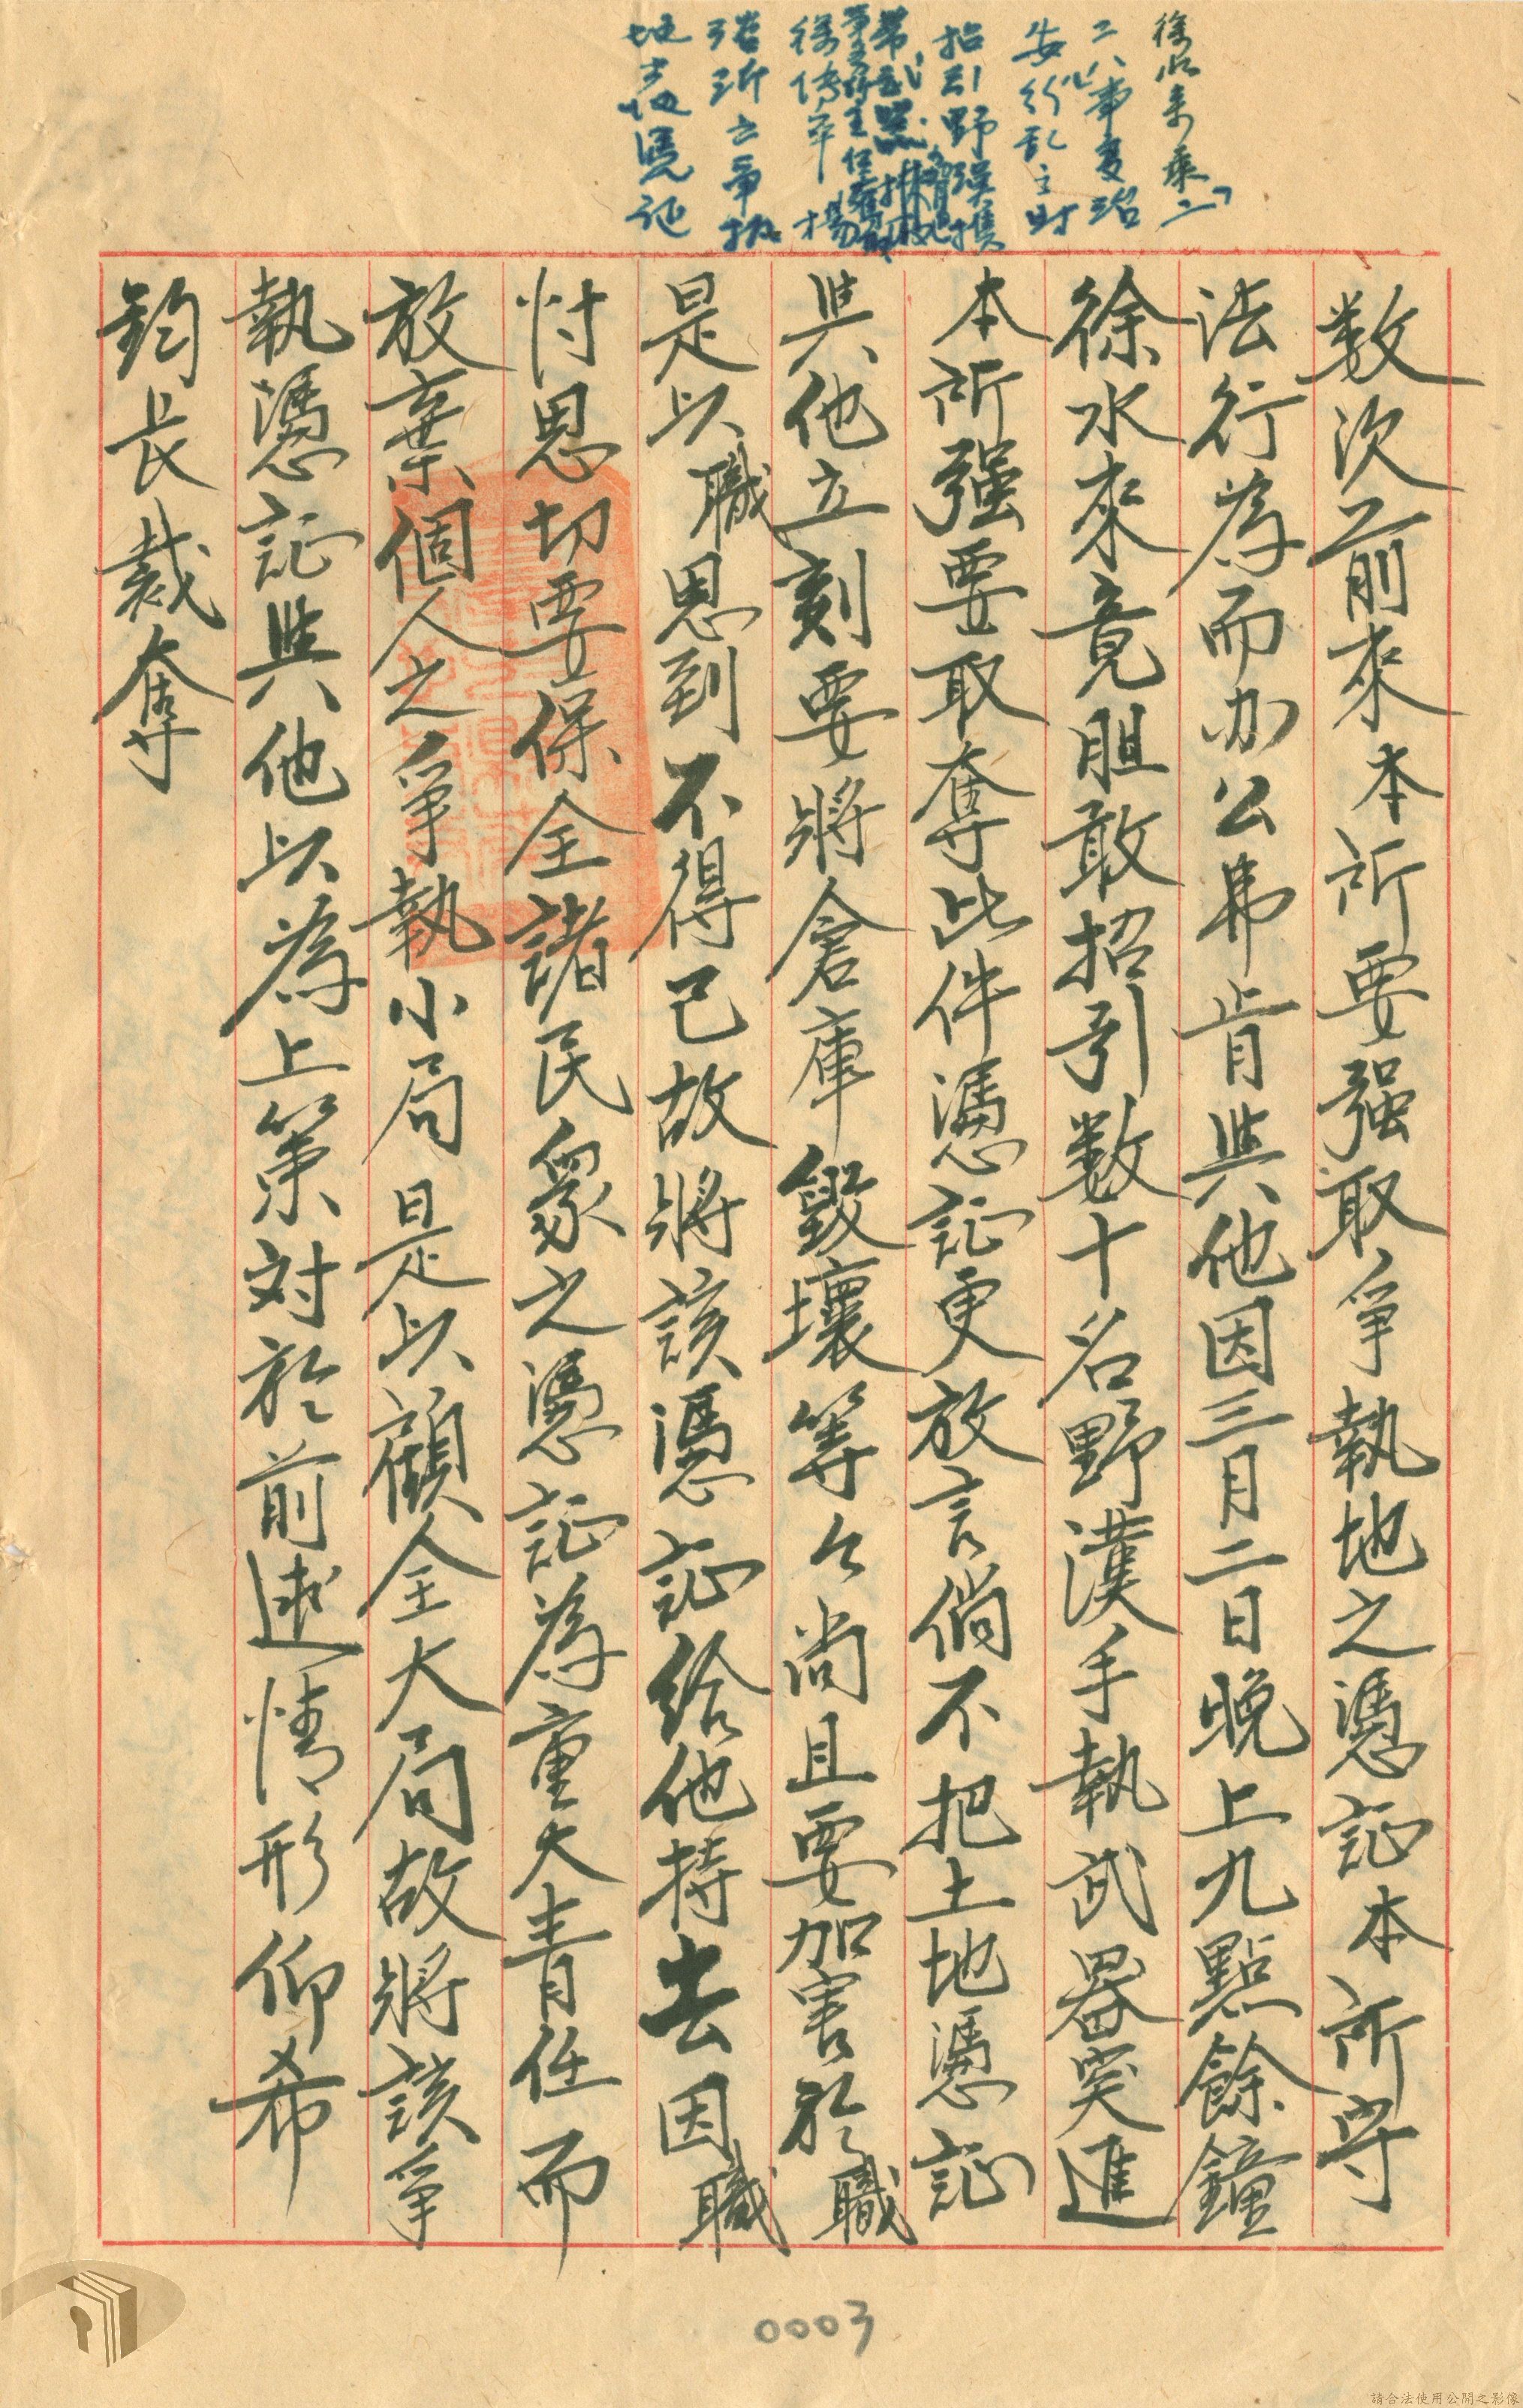 徐水來乘「二
二八」事変治
安紛乱之時
招引野漢携
帶武器
徐傳平
強所立爭執
地土地憑証
数次前來本所要强取爭執地之憑証本所守
法行為而办公弗肯與他因三月二日晚上九點餘鐘
徐水來竟胆敢招引数十名野漢手執武器突進
本所强要取奪此件憑証更放言倘不把土地憑証
與他立刻要將倉庫毀壞等々尚且要加害於職
是以職思到不得已故將該憑証給他持去因職
忖思切要保全諸民衆之憑証為重大責任而
放棄個人之爭執小局是以顧全大局故將該爭
執憑証與他以為上策对於前述情形仰希
鈞長裁奪
0003
請合法使用公開之影像